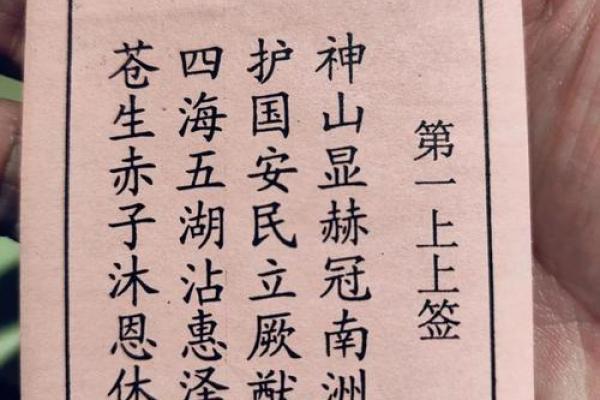 第一上上签
神山显赫冠南洲
护国安民立厥猷
四海五湖沾惠泽
苍生赤子沐恩休